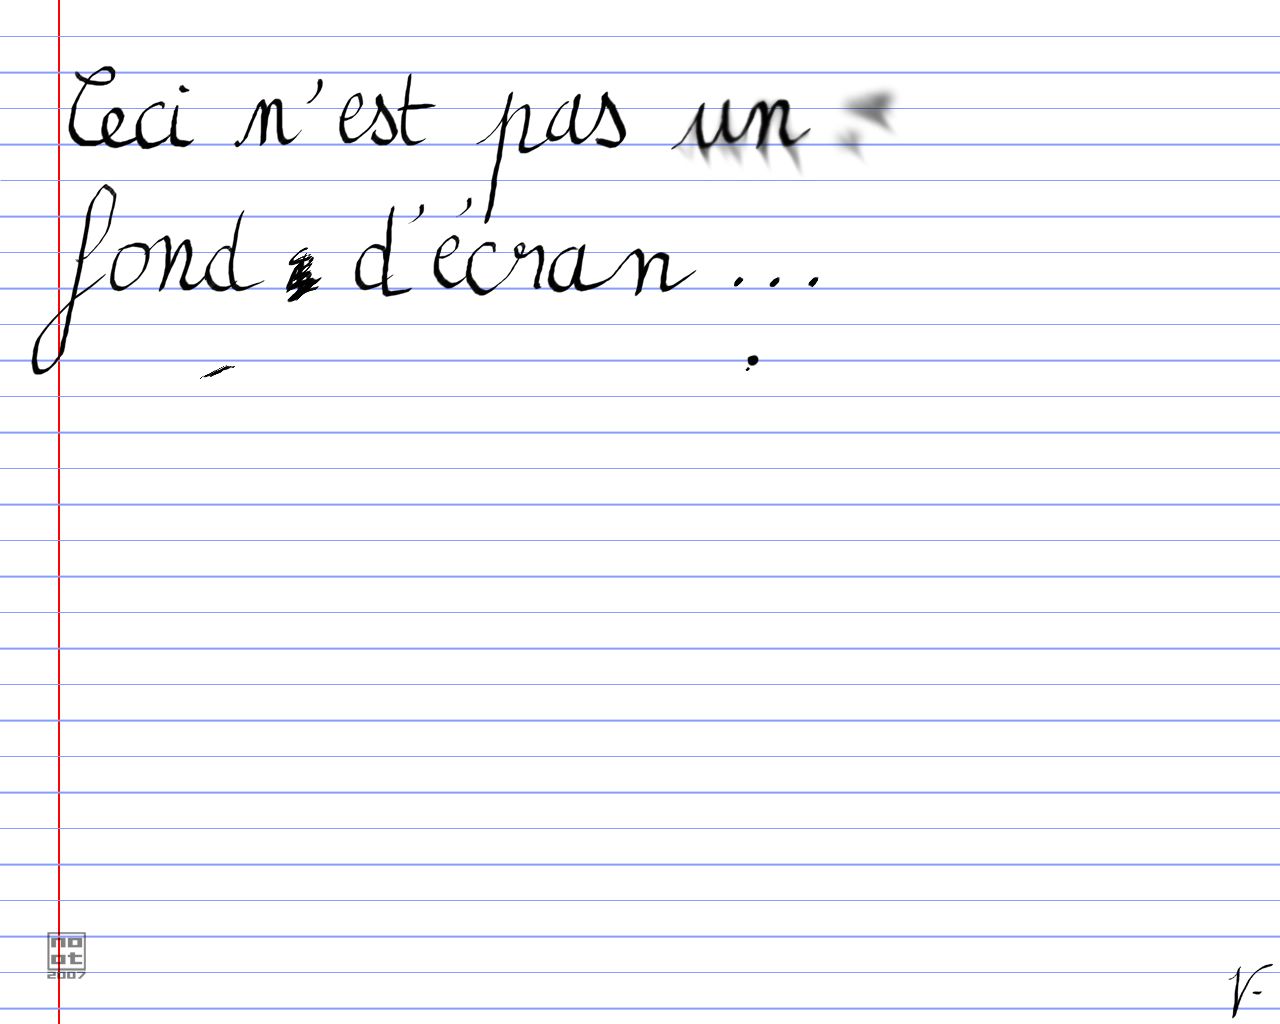 Ceci n'est pas un
fond d'écran...
no
ot
2007
V-